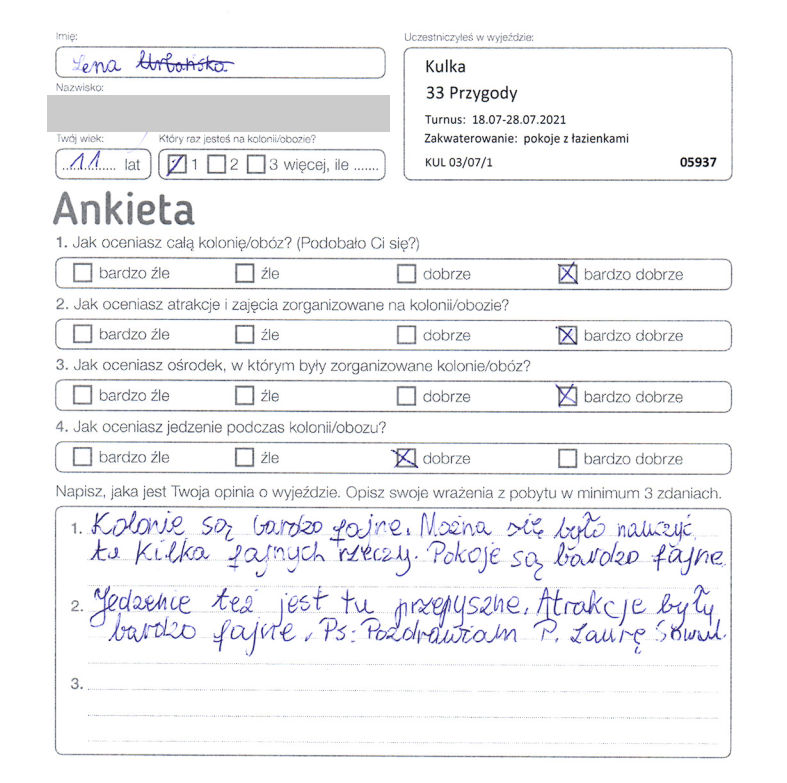 Imię:
Lena Urbańska
Nazwisko:
Twój wiek:
Który raz jesteś na kolonii/obozie?
11 lat
1 2 3 więcej, ile .......
Uczestniczyłeś w wyjeździe:
Kulka
33 Przygody
Turnus: 18.07-28.07.2021
Zakwaterowanie: pokoje z łazienkami
KUL 03/07/1 05937
Ankieta
1. Jak oceniasz całą kolonię/obóz? (Podobało Ci się?)
bardzo źle źle dobrze bardzo dobrze
2. Jak oceniasz atrakcje i zajęcia zorganizowane na kolonii/obozie?
bardzo źle źle dobrze bardzo dobrze
3. Jak oceniasz ośrodek, w którym były zorganizowane kolonie/obóz?
bardzo źle źle dobrze bardzo dobrze
4. Jak oceniasz jedzenie podczas kolonii/obozu?
bardzo źle źle dobrze bardzo dobrze
Napisz, jaka jest Twoja opinia o wyjeździe. Opisz swoje wrażenia z pobytu w minimum 3 zdaniach.
1. Kolonie są bardzo fajne. Można się było nauczyć
tu kilka fajnych rzeczy. Pokoje są bardzo fajne
2. Jedzenie też jest tu przepyszne. Atrakcje były
bardzo fajne. Ps: Pozdrawiam P. Laurę
3.